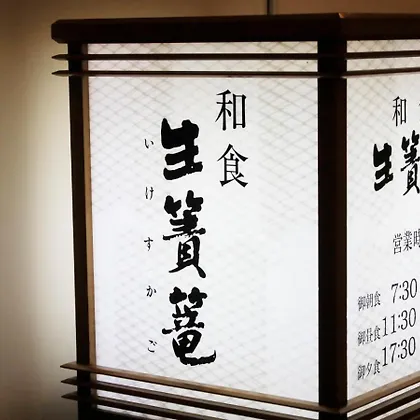 和食
生簀籠
いけすかご
和
生簀
営業時
御朝食 7:30
御昼食 11:30
御夕食 17:30